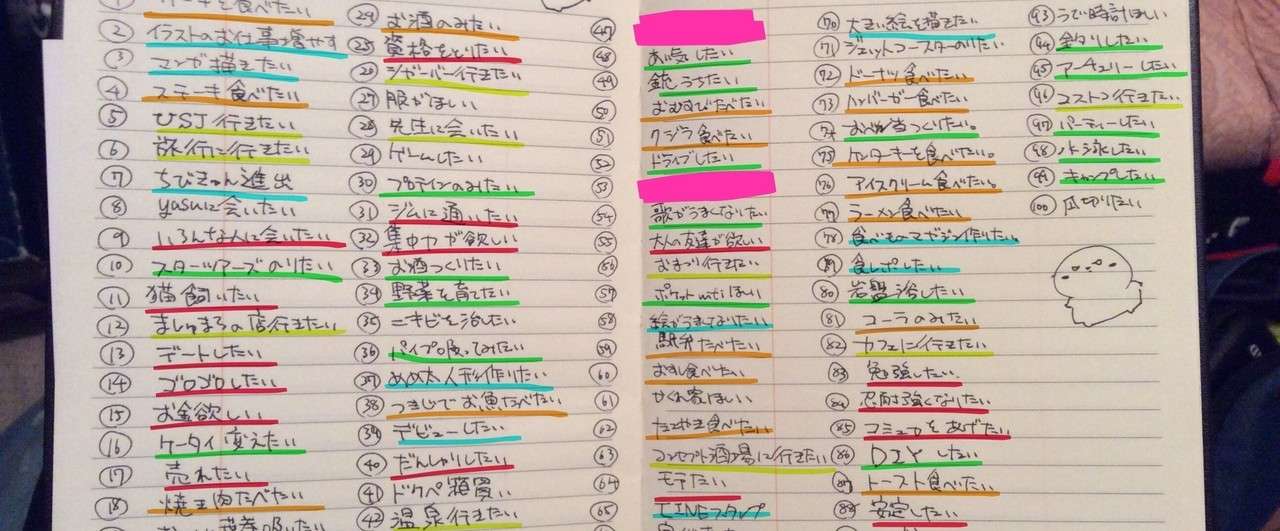 ① を食べたい
② イラストのお仕事増やす
③ マンガ描きたい
④ ステーキ食べたい
⑤ USJ行きたい
⑥ 旅行に行きたい
⑦ ちびきゅん進出
⑧ yasuに会いたい
⑨ いろんな人に会いたい
⑩ スターツアーズのりたい
⑪ 猫飼いたい
⑫ ましゅまろの店行きたい
⑬ デートしたい
⑭ ゴロゴロしたい
⑮ お金欲しい
⑯ ケータイ変えたい
⑰ 売れたい
⑱ 焼き肉たべたい
㉔ お酒のみたい
㉕ 資格をとりたい
㉖ シガーバー行きたい
㉗ 服がほしい
㉘ 先生に会いたい
㉙ ゲームしたい
㉚ プロテインのみたい
㉛ ジムに通いたい
㉜ 集中力が欲しい
㉝ お酒つくりたい
㉞ 野菜を育てたい
㉟ ニキビを治したい
㊱ パイプ吸ってみたい
㊲ めめ太人形作りたい
㊳ つきじでお魚たべたい
㊴ デビューしたい
㊵ だんしゃりしたい
㊶ ドクペ箱買い
㊷ 温泉行きたい
㊼
㊽ あ気したい
㊾ 銃うちたい
㊿ おむすびたべたい
51 クジラ食べたい
52 ドライブしたい
53
54 歌がうまくなりたい
55 大人の友達が欲しい
56 おまつり行きたい
57 ポケットwifiほしい
58 絵がうまくなりたい
59 駅弁たべたい
60 おすし食べたい
61 かくれ家ほしい
62 たこやき食べたい
63 コンセプト酒場に行きたい
64 モテたい
65 LINEスタンプ
70 大きい絵を描きたい
71 ジェットコースターのりたい
72 ドーナツ食べたい
73 ハンバーガー食べたい
74 おべん当つくりたい。
75 ケンタッキーを食べたい。
76 アイスクリーム食べたい。
77 ラーメン食べたい
78 食べものマガジン作りたい。
79 食レポしたい
80 岩盤浴したい
81 コーラのみたい
82 カフェに行きたい
83 勉強したい.
84 忍耐強くなりたい
85 コミュ力をあげたい
86 DIYしたい
87 トースト食べたい
88 安定したい
93 うで時計ほしい
94 釣りしたい
95 アーチェリーしたい
96 コストコ行きたい
97 パーティーしたい
98 泳したい
99 キャンプしたい
100 爪切りたい